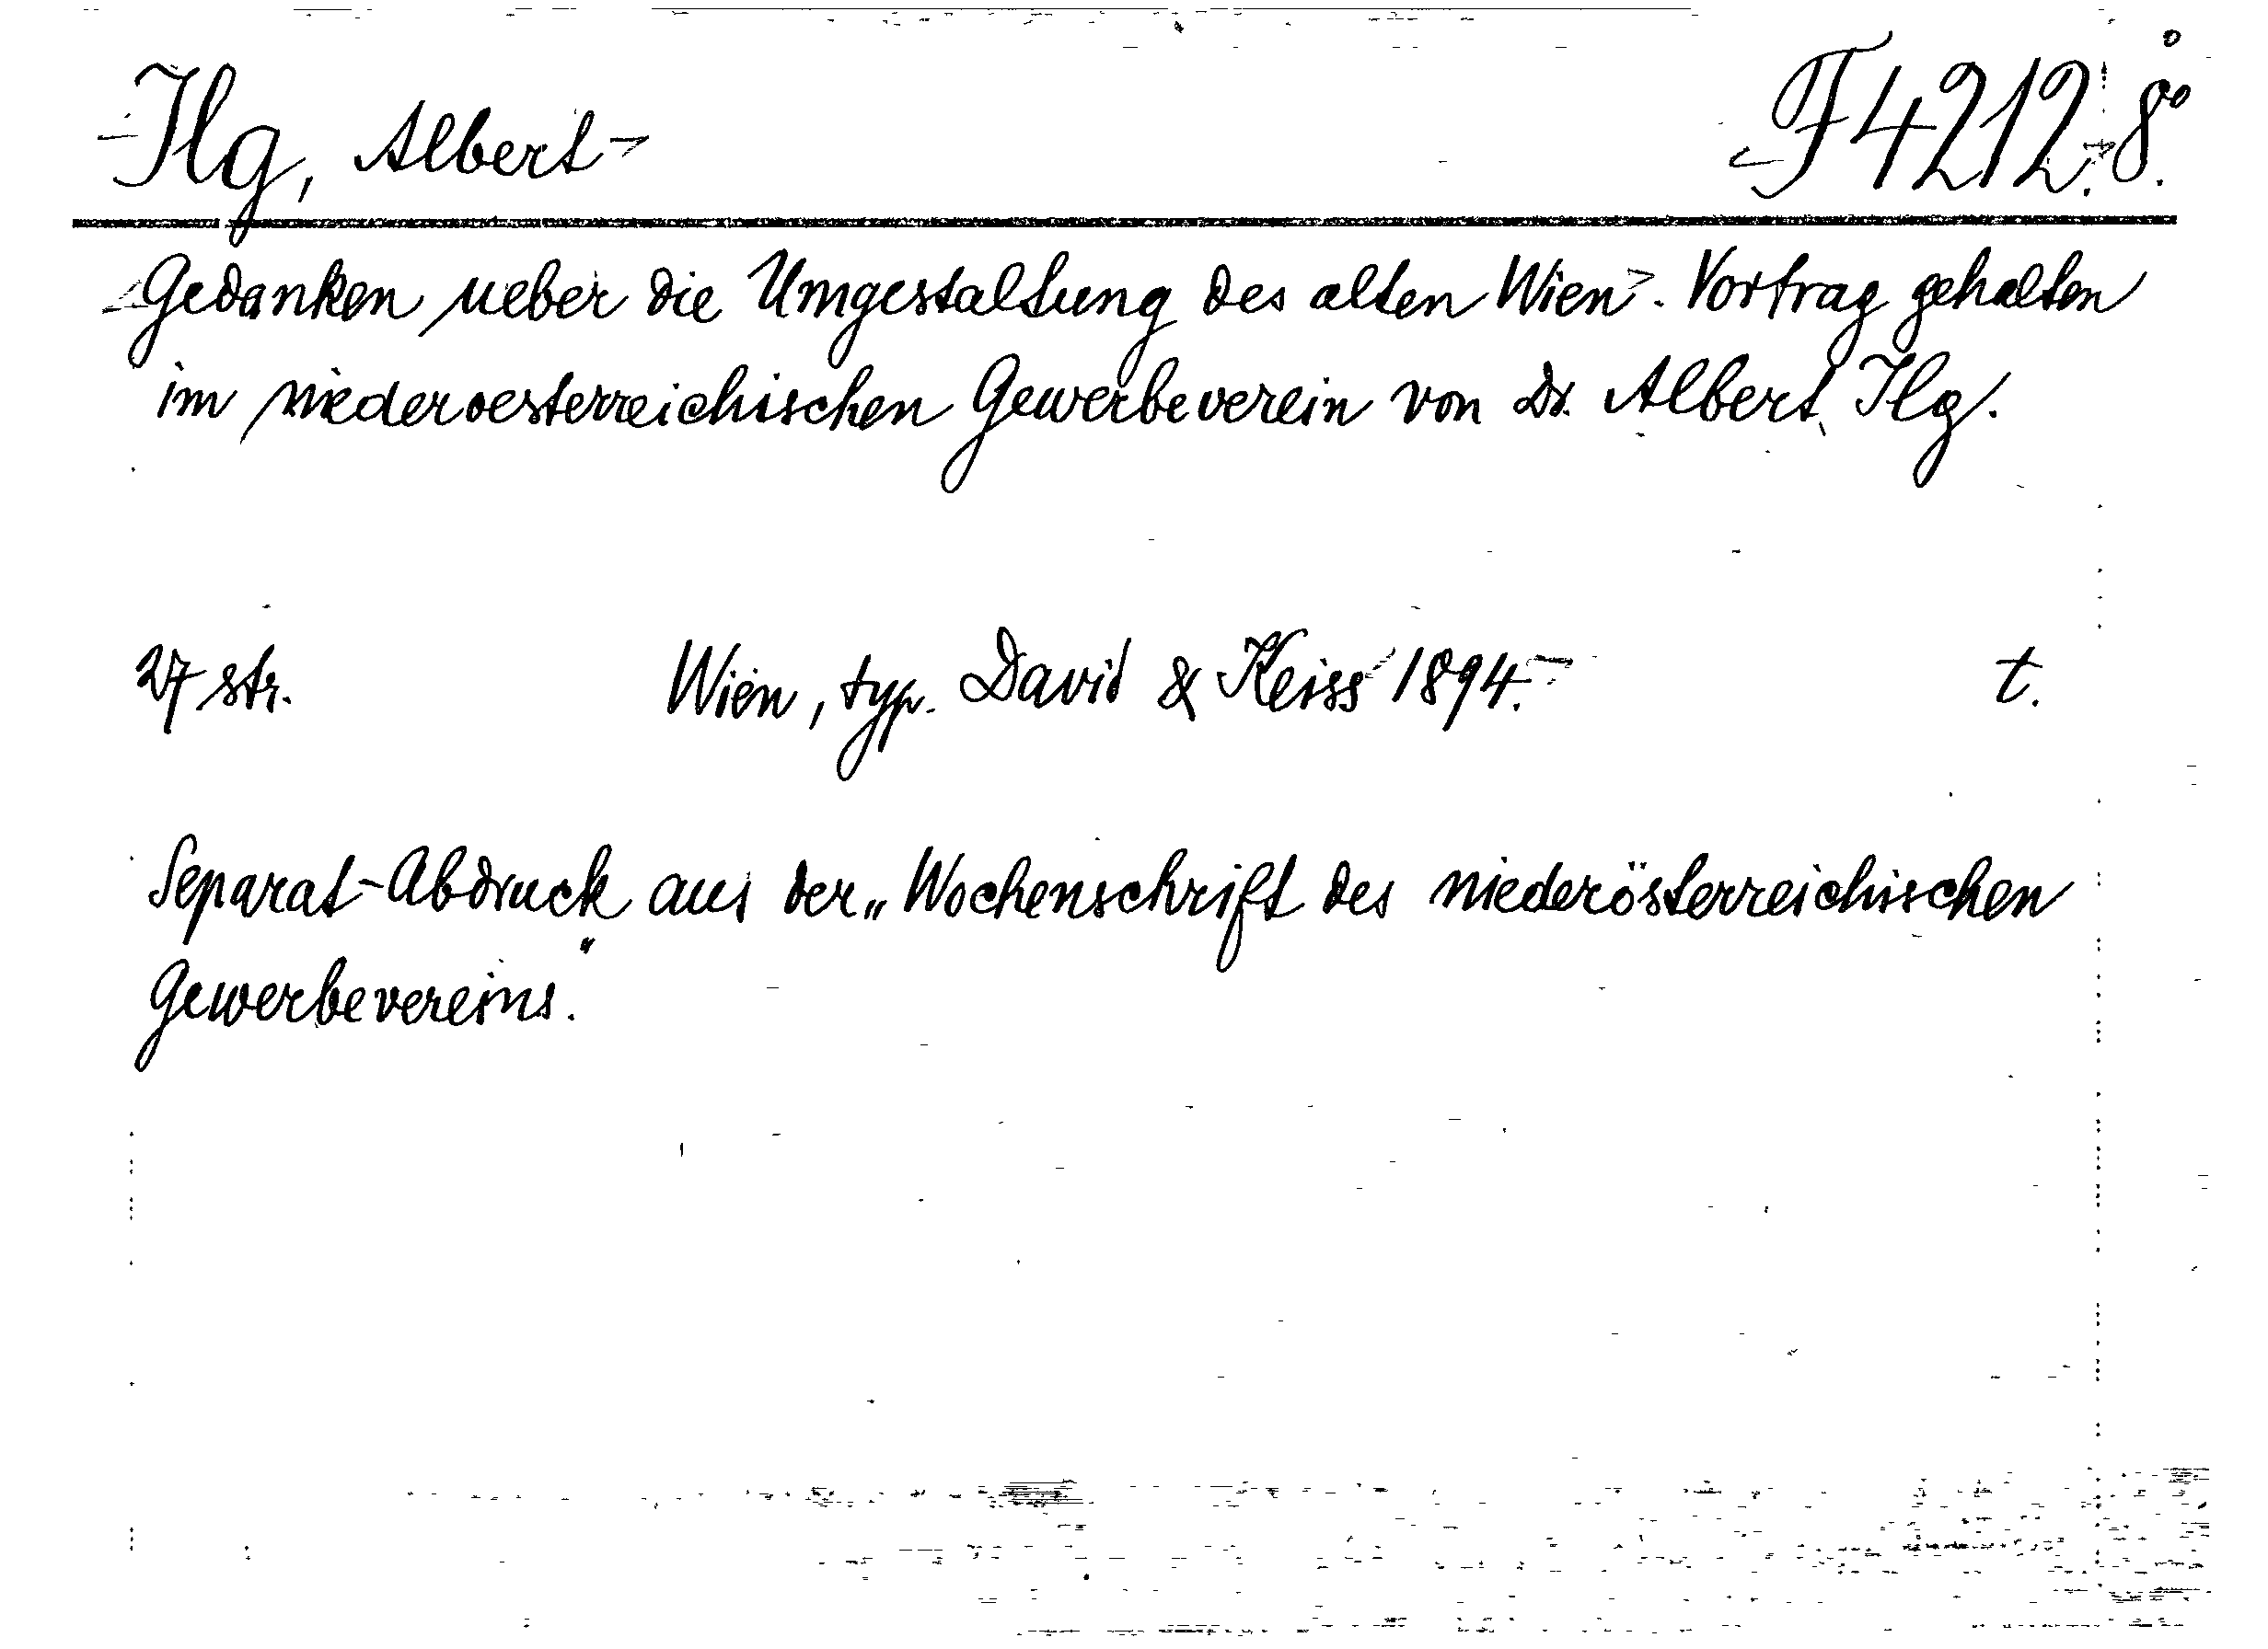 Ilg, Albert F 4212. 8°.
Gedanken ueber die Umgestaltung des alten Wien. Vortrag gehalten
im niederoesterreichischen Gewerbeverein von Dr. Albert Ilg.
27 str. Wien, typ. David & Keiss 1894. t.
Separat-Abdruck aus der „Wochenschrift des niederösterreichischen
Gewerbevereins."